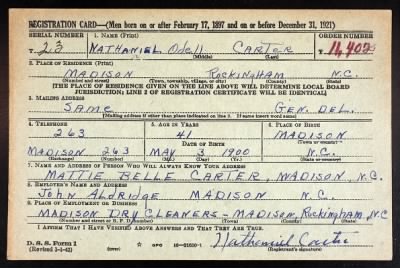 REGISTRATION CARD—(Men born on or after February 17, 1897 and on or before December 31, 1921)
SERIAL NUMBER 1. NAME (Print) ORDER NUMBER
T 23 NATHANIEL Odell CARTER
(First) (Middle) (Last)
2. PLACE OF RESIDENCE (Print)
MADISON Rockingham N.C.
(Number and street) (Town, township, village, or city) (County) (State)
[THE PLACE OF RESIDENCE GIVEN ON THE LINE ABOVE WILL DETERMINE LOCAL BOARD
JURISDICTION; LINE 2 OF REGISTRATION CERTIFICATE WILL BE IDENTICAL]
3. MAILING ADDRESS
SAME GEN. DEL.
[Mailing address if other than place indicated on line 2. If same insert word same]
4. TELEPHONE 5. AGE IN YEARS 6. PLACE OF BIRTH
263 41 MADISON
DATE OF BIRTH (Town or county)
MADISON 263 MAY 3 1900 N.C.
(Exchange) (Number) (Mo.) (Day) (Yr.) (State or country)
7. NAME AND ADDRESS OF PERSON WHO WILL ALWAYS KNOW YOUR ADDRESS
MATTIE BELLE CARTER MADISON N.C.
8. EMPLOYER'S NAME AND ADDRESS
John Aldridge MADISON N.C.
9. PLACE OF EMPLOYMENT OR BUSINESS
MADISON DRY CLEANERS—MADISON, Rockingham, N.C
(Number and street or R. F. D. number) (Town) (County) (State)
I AFFIRM THAT I HAVE VERIFIED ABOVE ANSWERS AND THAT THEY ARE TRUE.
D. S. S. Form 1 (over) GPO 16—21630-1 Nathaniel Carter
(Revised 2-1-42) (Registrant's signature)